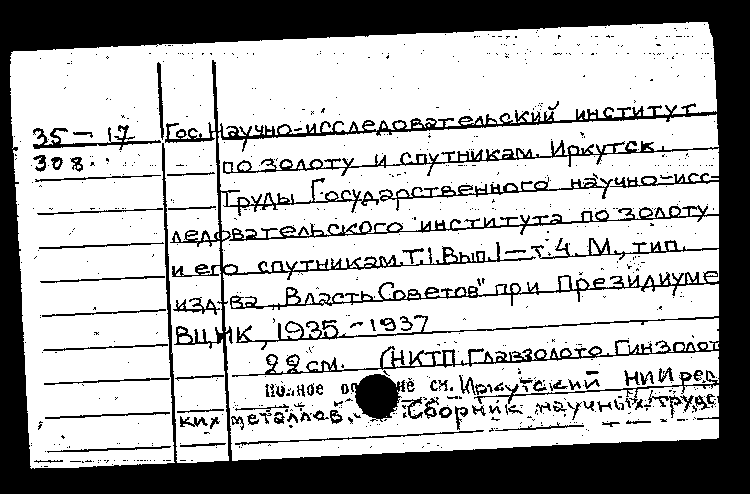 35-17 Гос. Научно-исследовательский институт
308. по золоту и спутникам. Иркутск.
Труды Государственного научно-исс-
ледовательского института по золоту
и его спутникам. Т.1. Вып.1-т.4. М., тип.
изд-ва "Власть Советов" при Президиуме
ВЦИК, 1935.-1937
22 см. (НКТП. Главзолото. Гинзолот
Полное см. Иркутский НИИ ред
ких металлов. Сборник научных трудо